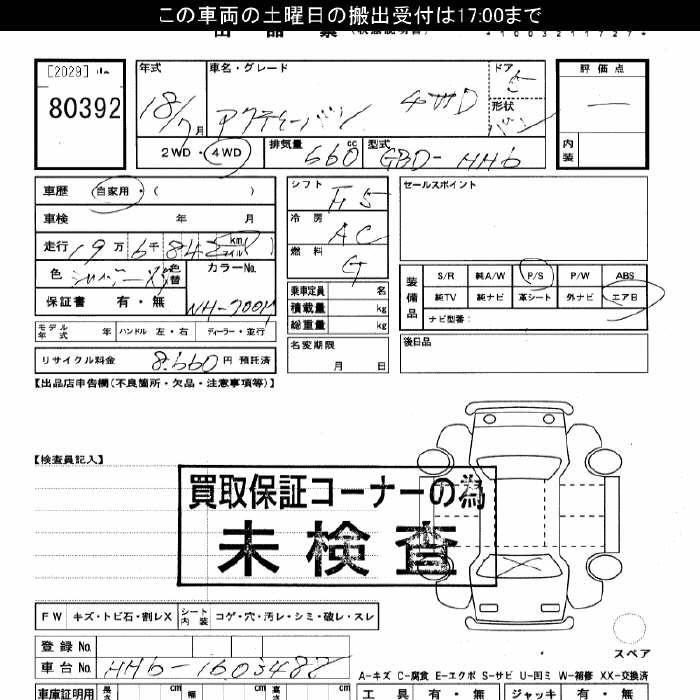 この車両の土曜日の搬出受付は17:00まで
出品票 (状態説明書)
[2029]
80392
年式 18/7月
車名・グレード アクティーバン 4WD
ドア 5
形状 バン
評価点 —
内装
2WD・4WD
排気量 660cc
型式 GBD-HH6
車歴 自家用・( )
車検 年 月
走行 19万6千842 km マイル
色 シルバーM 色替
カラーNo. NH-700M
保証書 有・無
モデル年式 年 ハンドル 左・右 ディーラー・並行
リサイクル料金 8,660円 預託済
シフト F5
冷房 AC
燃料 G
乗車定員 名
積載量 kg
総重量 kg
名変期限 月 日
セールスポイント
装備品 S/R 純A/W P/S P/W ABS
純TV 純ナビ 革シート 外ナビ エアB
ナビ型番:
後日品
【出品店申告欄(不良箇所・欠品・注意事項等)】
【検査員記入】
買取保証コーナーの為
未検査
FW キズ・トビ石・割レX シート内装 コゲ・穴・汚レ・シミ・破レ・スレ
スペア
登録No.
車台No. HH6-1603482
A-キズ C-腐食 E-エクボ S-サビ U-凹ミ W-補修 XX-交換済
車庫証明用 長さ cm 幅 cm 高さ cm
工具 有・無 ジャッキ 有・無